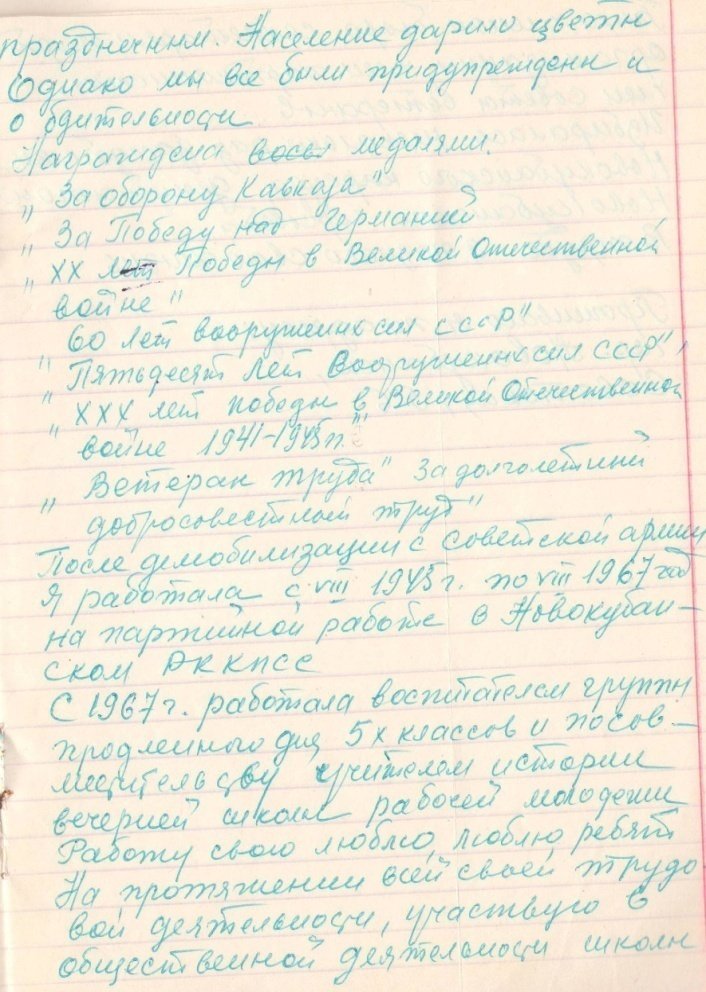 праздничным. Население дарило цветы
Однако мы все были придупреждены и
о бдительности
Награждена восьл медалями.
"За оборону Кавказа"
"За Победу над Германией
"ХХ лет Победы в Великой Отечественной
войне"
60 лет вооруженных сил СССР"
"Пятьдесят лет Вооруженных сил СССР",
"ХХХ лет победы в Великой Отечественной
войне 1941-1945гг."
"Ветеран труда" За долголетний
добросовестный труд"
После демобилизации с советской армии
я работала с VIII 1945г. по VIII 1967 год
на партийной работе в Новокубан-
ском РК КПСС
С 1967 г. работала воспитателем группы
продленного дня 5х классов и по сов-
местительству учителем истории
вечерней школы рабочей молодежи
Работу свою люблю, люблю ребят
На протяжении всей своей трудо
вой деятельности, участвую в
общественной деятельности школы